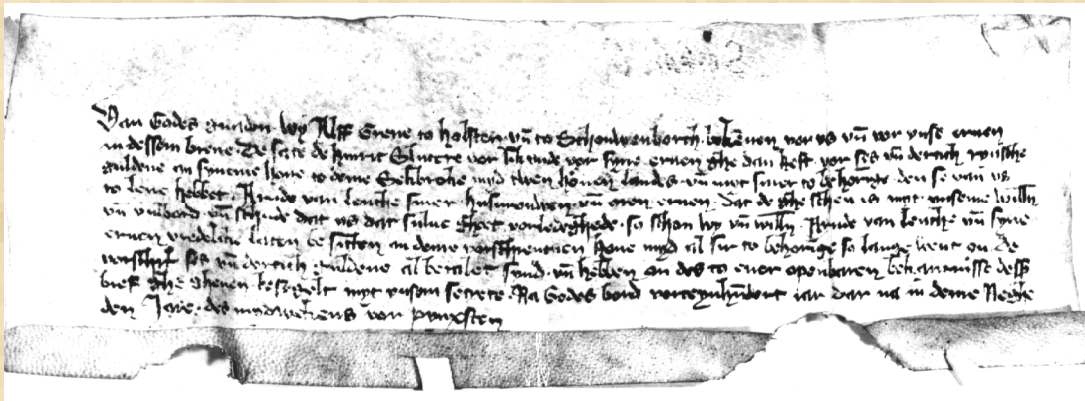 Van Godes gnaden wy Alff Greue to holsten vn̄ to Schouwenborch bekēnen vor vs vn̄ vor vnse eruen
in dessem breue De sate de hinric Slutere vor sik vnde vor syne eruen ghe dan heft vor ses vn̄ dertich rynsche
guldene an syneme houe to deme myd twen houen landes vn̄ myt siner to behoringe den se van vs
to lene hebbet Arnde van Lenthe siner husurouwen vn̄ eren eruen Dat de ghe schen is myt vnseme willn̄
vn̄ vulbord vn̄ schude dat vs dat sulue ghet vorledeghede so schon wy vn̄ willn̄ Arnde van Lenthe vn̄ syne
eruen vredelike laten be sitten in deme vorscreuenen houe myd al sir to behoringe so lange bent on de
vorschr ses vn̄ dertich guldene al betalet sind vn̄ hebben on des to ener openbaren bekantnisse dess
breff ghe gheuen besegelt myt vnsem secrete Na Godes bord verteynhūdert iar dar na in deme Neghe
den Jare des mydwekens vor pynxsten